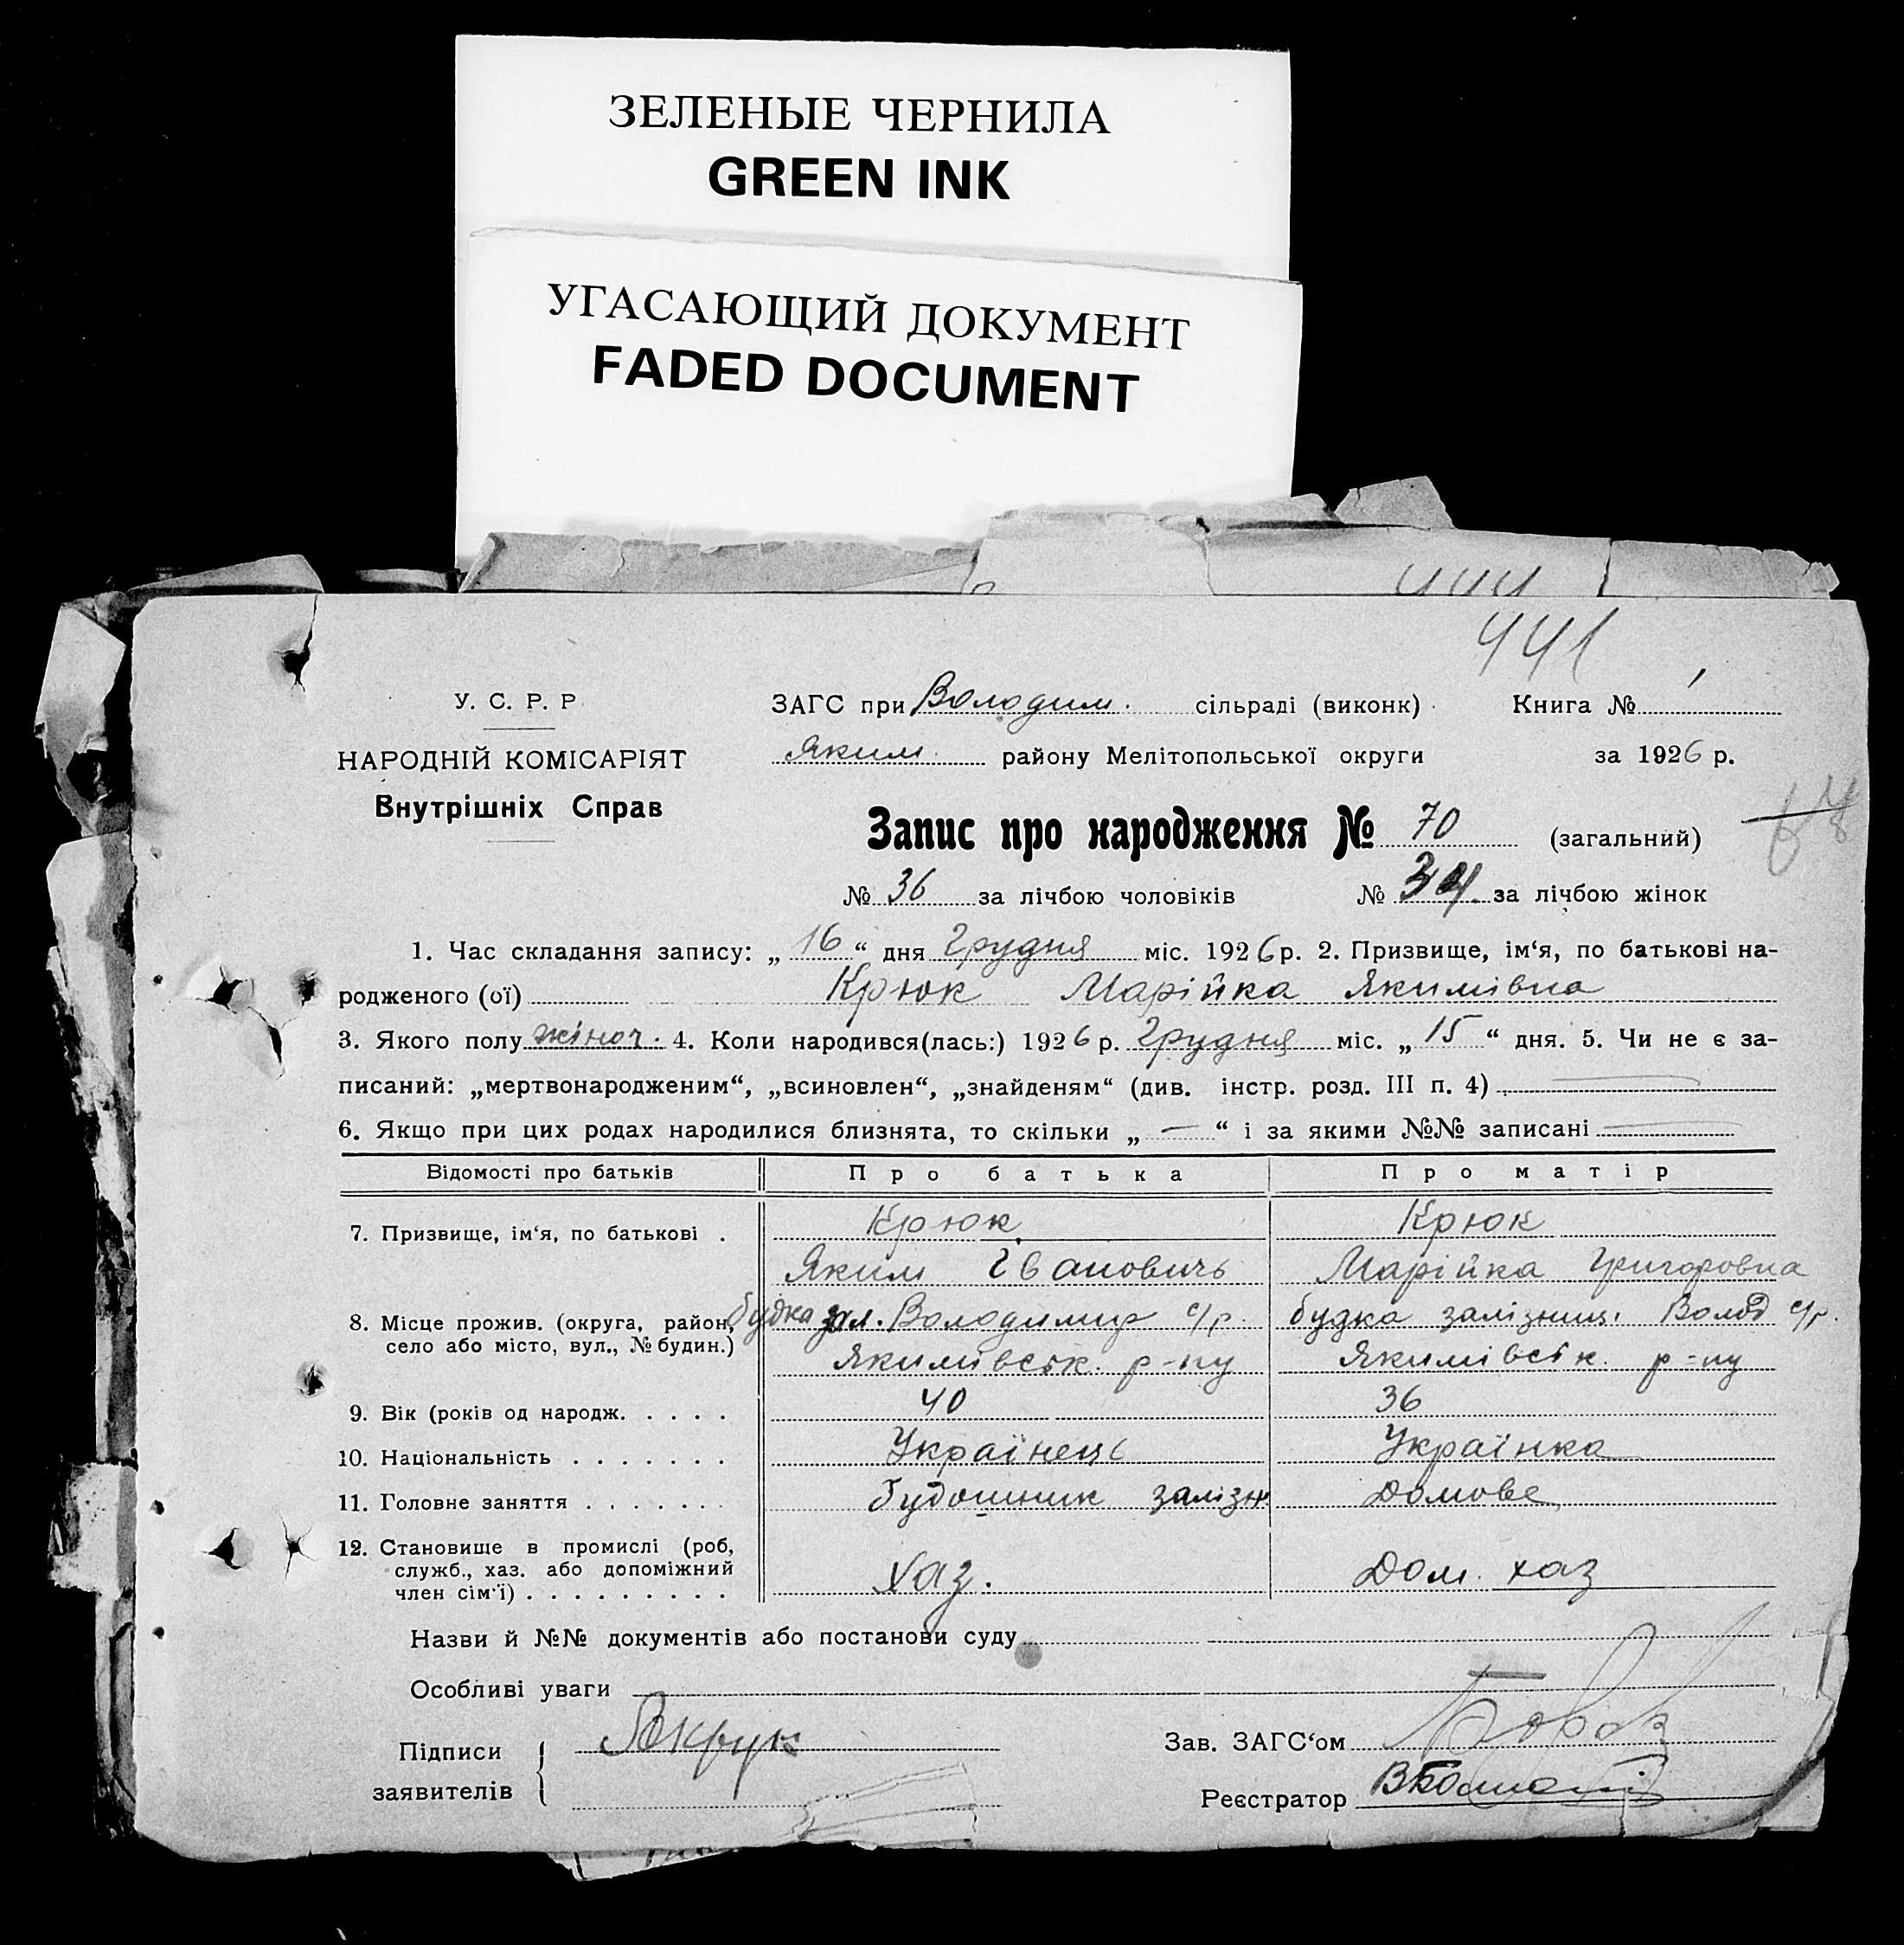 ЗЕЛЕНЫЕ ЧЕРНИЛА
GREEN INK
УГАСАЮЩИЙ ДОКУМЕНТ
FADED DOCUMENT
441
У. С. Р. Р.
ЗАГС при Володим. сільраді (виконк)
Книга № 1
НАРОДНІЙ КОМІСАРІЯТ
Яким. району Мелітопольської округи
за 1926 р.
Внутрішніх Справ
Запис про народження № 70 (загальний)
№ 36 за лічбою чоловіків № 34 за лічбою жінок
1. Час складання запису: „ 16 “ дня Грудня міс. 1926 р. 2. Призвище, ім‘я, по батькові на-
родженого (ої) Крюк Марійка Якимівна
3. Якого полу жіноч. 4. Коли народився(лась:) 1926 р. Грудня міс. „ 15 “ дня. 5. Чи не є за-
писаний: „мертвонародженим“, „всиновлен“, „знайденям“ (див. інстр. розд. III п. 4) —
6. Якщо при цих родах народилися близнята, то скільки „ — “ і за якими №№ записані —
Відомості про батьків Про батька Про матір
7. Призвище, ім‘я, по батькові . Крюк Крюк
Яким Івановичь Марійка Григоровна
8. Місце прожив. (округа, район, будка зал. Володимир с/р. будка залізниц. Волод с/р.
село або місто, вул., № будин.) Якимівськ. р-ну Якимівськ. р-ну
9. Вік (років од народж. . . . . 40 36
10. Національність . . . . . . . Українець Українка
11. Головне заняття . . . . . . . Будошник залізн Домове
12. Становище в промислі (роб,
служб., хаз. або допоміжний Хаз. Дом. хаз
член сім‘ї) . . . . . . . . .
Назви й №№ документів або постанови суду
Особливі уваги
Підписи Якрук
заявителів
Зав. ЗАГС‘ом
Реєстратор